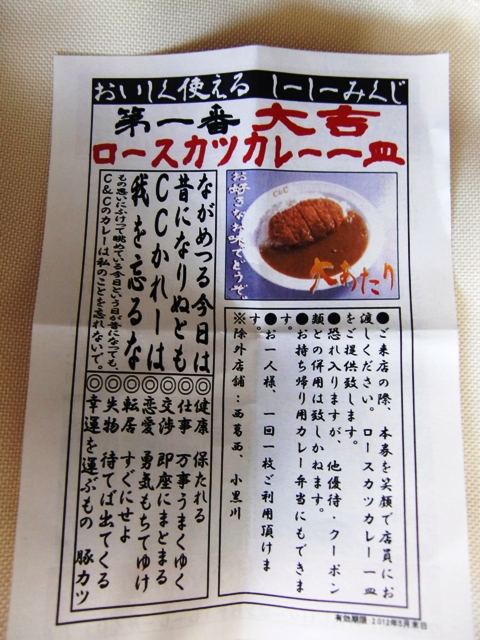 おいしく使える しーしーみくじ
第一番 大吉
ロースカツカレー一皿
お好きなお味でどうぞ。
C&C
大あたり
ながめつる今日は
昔になりぬとも
CCかれーは
我を忘るな
もの思いにふけって眺めている今日という日が昔になっても、
C&Cのカレーは私のことを忘れないで。
●ご来店の際、本券を笑顔で店員にお
渡しください。ロースカツカレー一皿
をご提供致します。
●恐れ入りますが、他優待・クーポン
類との併用は致しかねます。
●お持ち帰り用カレー弁当にもできま
す。
●お一人様、一回一枚ご利用頂けま
す。
※除外店舗：西葛西、小黒川
◎健康 保たれる
◎仕事 万事うまくゆく
◎交渉 即座にまとまる
◎恋愛 勇気もちてゆけ
◎転居 すぐにせよ
◎失物 待てば出てくる
◎幸運を運ぶもの 豚カツ
有効期限 2012年5月末日